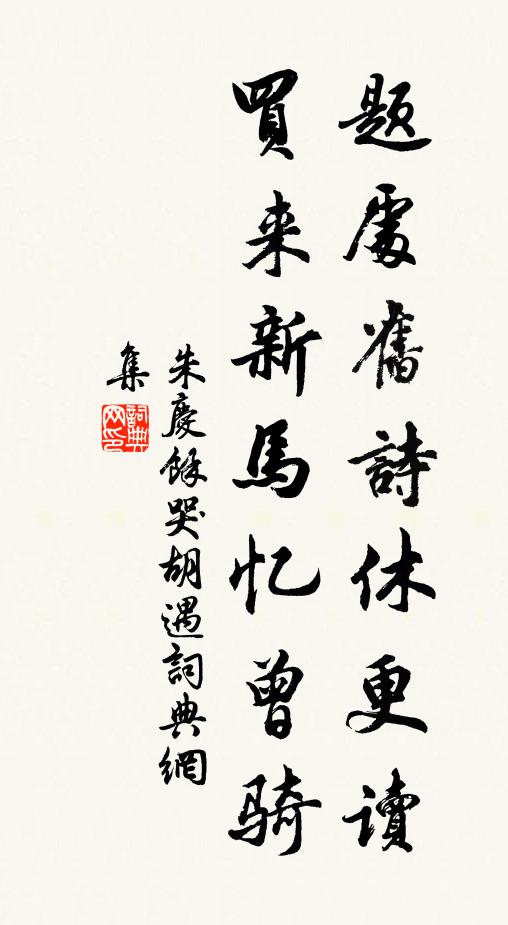 题處舊詩休更读
買来新馬忆曾骑
朱慶餘哭胡遇詞典網
集
詞典网印